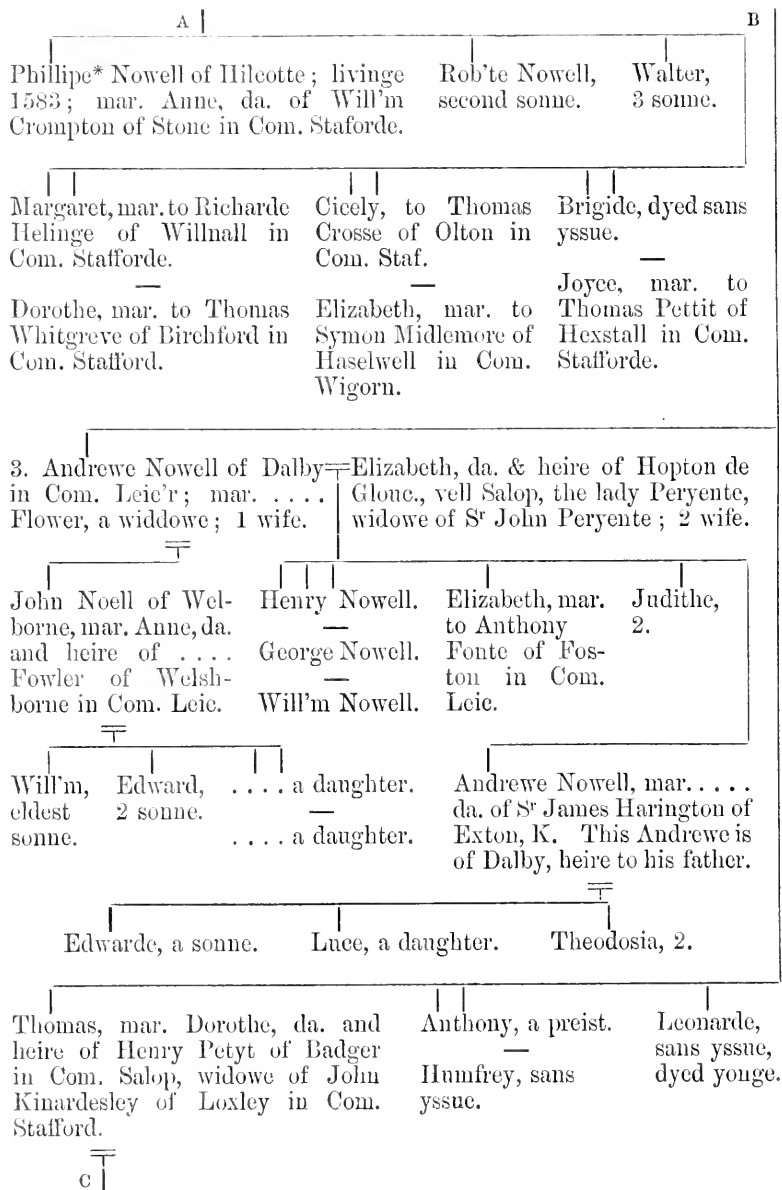 A B
Phillipe* Nowell of Hilcotte ; livinge
1583 ; mar. Anne, da. of Will'm
Crompton of Stone in Com. Staforde.
Rob'te Nowell,
second sonne.
Walter,
3 sonne.
Margaret, mar. to Richarde
Helinge of Willnall in
Com. Stafforde.
—
Dorothe, mar. to Thomas
Whitgreve of Birchford in
Com. Stafford.
Cicely, to Thomas
Crosse of Olton in
Com. Staf.
—
Elizabeth, mar. to
Symon Midlemore of
Haselwell in Com.
Wigorn.
Brigide, dyed sans
yssue.
—
Joyce, mar. to
Thomas Pettit of
Hexstall in Com.
Stafforde.
3. Andrewe Nowell of Dalby
in Com. Leic'r ; mar. . . . .
Flower, a widdowe ; 1 wife.
Elizabeth, da. & heire of Hopton de
Glouc., vell Salop, the lady Peryente,
widowe of Sr John Peryente ; 2 wife.
John Noell of Wel-
borne, mar. Anne, da.
and heire of . . . .
Fowler of Welsh-
borne in Com. Leic.
Henry Nowell.
—
George Nowell.
—
Will'm Nowell.
Elizabeth, mar.
to Anthony
Fonte of Fos-
ton in Com.
Leic.
Judithe,
2.
Will'm,
eldest
sonne.
Edward,
2 sonne.
. . . . a daughter.
—
. . . . a daughter.
Andrewe Nowell, mar. . . . .
da. of Sr James Harington of
Exton, K. This Andrewe is
of Dalby, heire to his father.
Edwarde, a sonne. Luce, a daughter. Theodosia, 2.
Thomas, mar. Dorothe, da. and
heire of Henry Petyt of Badger
in Com. Salop, widowe of John
Kinardesley of Loxley in Com.
Stafford.
Anthony, a preist.
—
Humfrey, sans
yssue.
Leonarde,
sans yssue,
dyed yonge.
C